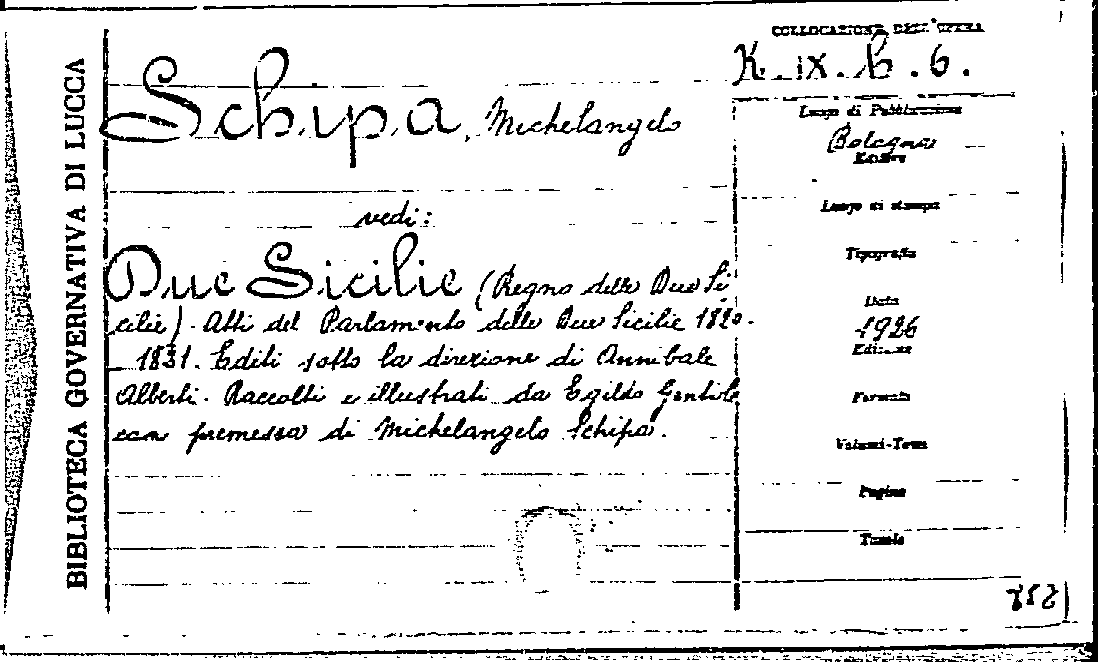 BIBLIOTECA GOVERNATIVA DI LUCCA
COLLOCAZIONE DELL'OPERA
K. IX. b. 6.
Schipa, Michelangelo
Luogo di Pubblicazione
Bologna
Editore
Luogo di stampa
vedi:
Tipografia
Due Sicilie (Regno delle Due Si
cilie). Atti del Parlamento delle Due Sicilie 1820-
-1831. Editi sotto la direzione di Annibale
Alberti. Raccolti e illustrati da Egildo Gentile
con premessa di Michelangelo Schipa.
Data
1926
Edizione
Formato
Volumi-Tomi
Pagine
Tavole